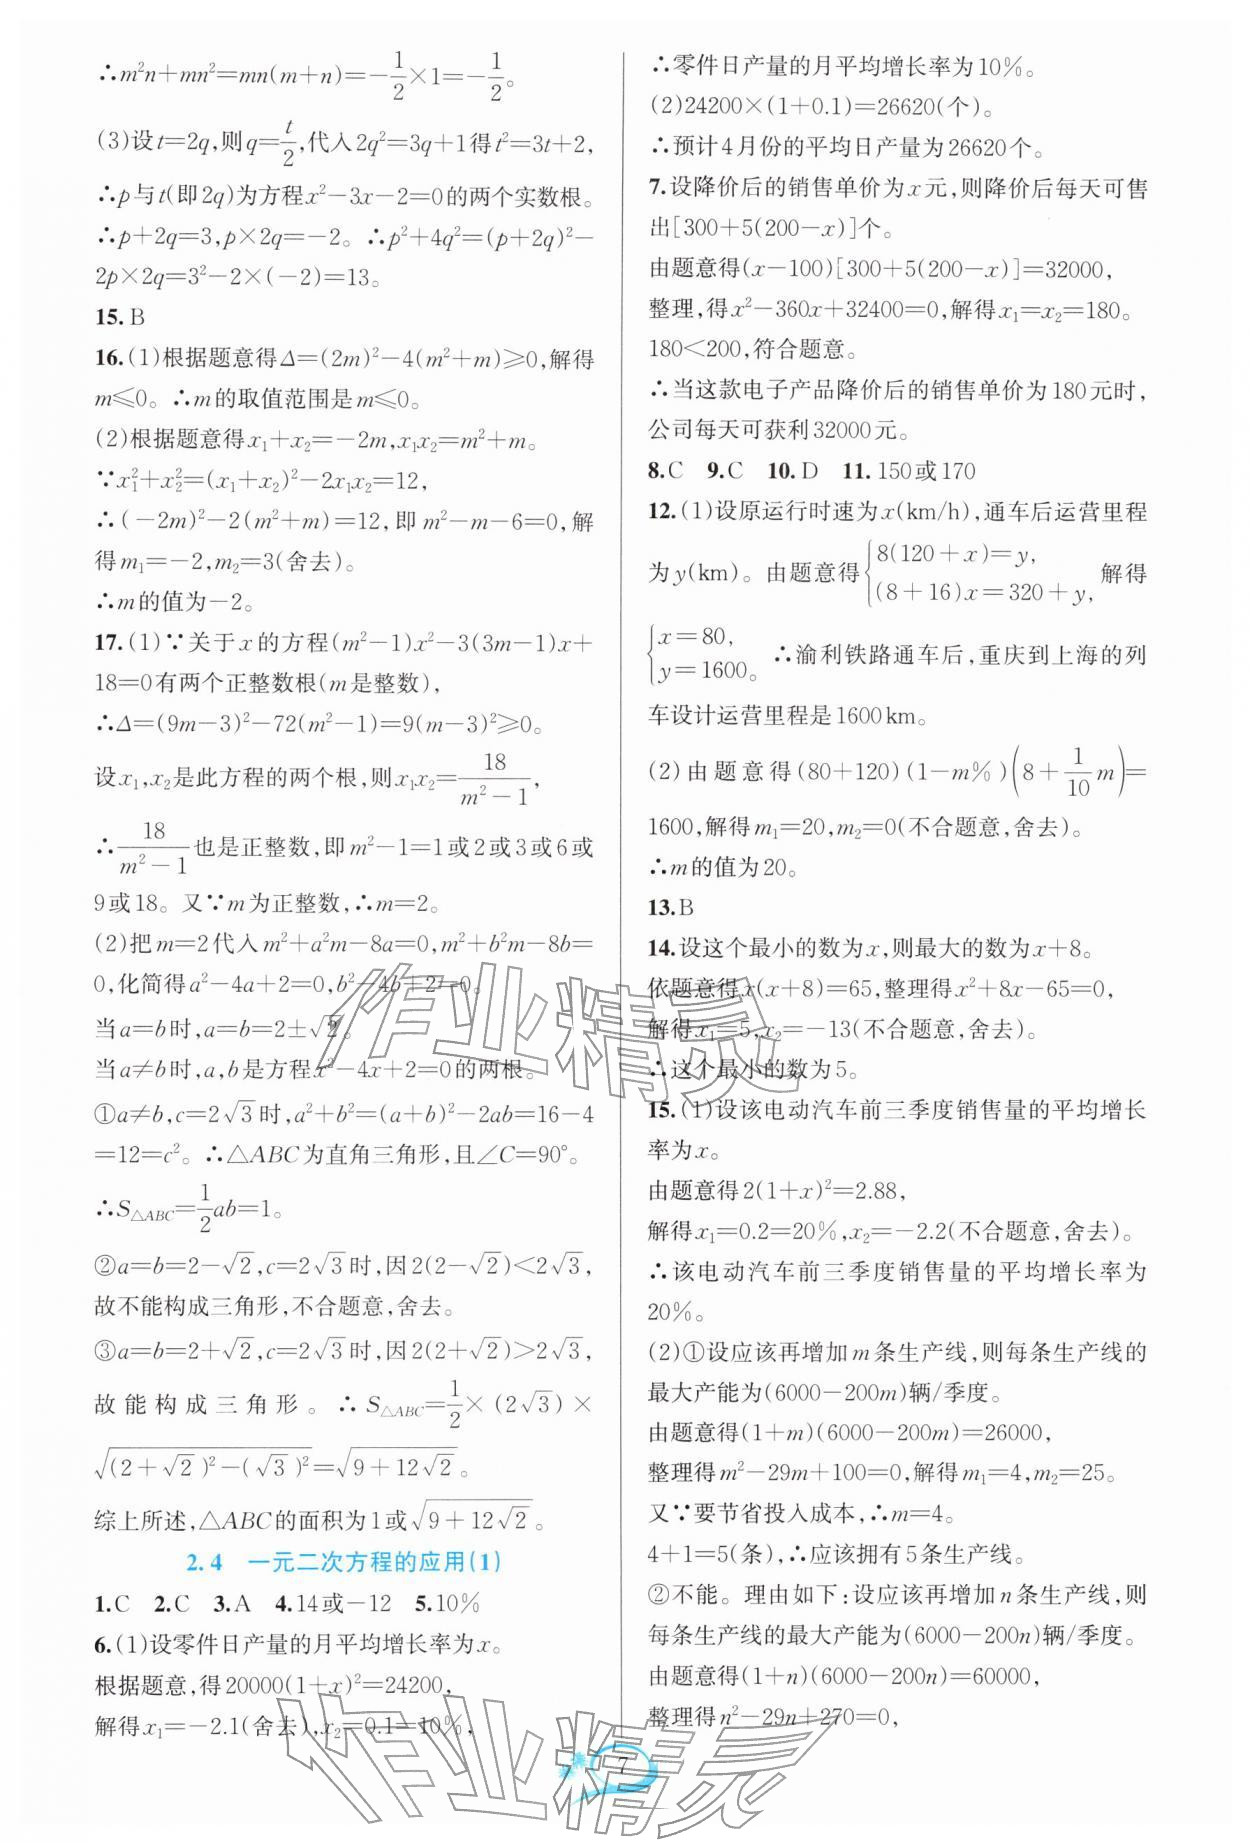 ∴m²n+mn²=mn(m+n)=-1/2×1=-1/2。
(3)设t=2q,则q=t/2,代入2q²=3q+1得t²=3t+2,
∴p与t(即2q)为方程x²-3x-2=0的两个实数根。
∴p+2q=3,p×2q=-2。∴p²+4q²=(p+2q)²-
2p×2q=3²-2×(-2)=13。
15.B
16.(1)根据题意得Δ=(2m)²-4(m²+m)≥0,解得
m≤0。∴m的取值范围是m≤0。
(2)根据题意得x₁+x₂=-2m,x₁x₂=m²+m。
∵x₁²+x₂²=(x₁+x₂)²-2x₁x₂=12,
∴(-2m)²-2(m²+m)=12,即m²-m-6=0,解
得m₁=-2,m₂=3(舍去)。
∴m的值为-2。
17.(1)∵关于x的方程(m²-1)x²-3(3m-1)x+
18=0有两个正整数根(m是整数),
∴Δ=(9m-3)²-72(m²-1)=9(m-3)²≥0。
设x₁,x₂是此方程的两个根,则x₁x₂=18/(m²-1),
∴18/(m²-1)也是正整数,即m²-1=1或2或3或6或
9或18。又∵m为正整数,∴m=2。
(2)把m=2代入m²+a²m-8a=0,m²+b²m-8b=
0,化简得a²-4a+2=0,b²-4b+2=0。
当a=b时,a=b=2±√2。
当a≠b时,a,b是方程x²-4x+2=0的两根。
①a≠b,c=2√3时,a²+b²=(a+b)²-2ab=16-4
=12=c²。∴△ABC为直角三角形,且∠C=90°。
∴S△ABC=1/2ab=1。
②a=b=2-√2,c=2√3时,因2(2-√2)<2√3,
故不能构成三角形,不合题意,舍去。
③a=b=2+√2,c=2√3时,因2(2+√2)>2√3,
故能构成三角形。∴S△ABC=1/2×(2√3)×
√((2+√2)²-(√3)²)=√(9+12√2)。
综上所述,△ABC的面积为1或√(9+12√2)。
2.4 一元二次方程的应用(1)
1.C 2.C 3.A 4.14或-12 5.10%
6.(1)设零件日产量的月平均增长率为x。
根据题意,得20000(1+x)²=24200,
解得x₁=-2.1(舍去),x₂=0.1=10%,
∴零件日产量的月平均增长率为10%。
(2)24200×(1+0.1)=26620(个)。
∴预计4月份的平均日产量为26620个。
7.设降价后的销售单价为x元,则降价后每天可售
出[300+5(200-x)]个。
由题意得(x-100)[300+5(200-x)]=32000,
整理,得x²-360x+32400=0,解得x₁=x₂=180。
180<200,符合题意。
∴当这款电子产品降价后的销售单价为180元时,
公司每天可获利32000元。
8.C 9.C 10.D 11.150或170
12.(1)设原运行时速为x(km/h),通车后运营里程
为y(km)。由题意得{8(120+x)=y, (8+16)x=320+y, 解得
{x=80, y=1600。 ∴渝利铁路通车后,重庆到上海的列
车设计运营里程是1600km。
(2)由题意得(80+120)(1-m%)(8+1/10m)=
1600,解得m₁=20,m₂=0(不合题意,舍去)。
∴m的值为20。
13.B
14.设这个最小的数为x,则最大的数为x+8。
依题意得x(x+8)=65,整理得x²+8x-65=0,
解得x₁=5,x₂=-13(不合题意,舍去)。
∴这个最小的数为5。
15.(1)设该电动汽车前三季度销售量的平均增长
率为x。
由题意得2(1+x)²=2.88,
解得x₁=0.2=20%,x₂=-2.2(不合题意,舍去)。
∴该电动汽车前三季度销售量的平均增长率为
20%。
(2)①设应该再增加m条生产线,则每条生产线的
最大产能为(6000-200m)辆/季度。
由题意得(1+m)(6000-200m)=26000,
整理得m²-29m+100=0,解得m₁=4,m₂=25。
又∵要节省投入成本,∴m=4。
4+1=5(条),∴应该拥有5条生产线。
②不能。理由如下:设应该再增加n条生产线,则
每条生产线的最大产能为(6000-200n)辆/季度。
由题意得(1+n)(6000-200n)=60000,
整理得n²-29n+270=0,
7
作业精灵
作业精灵